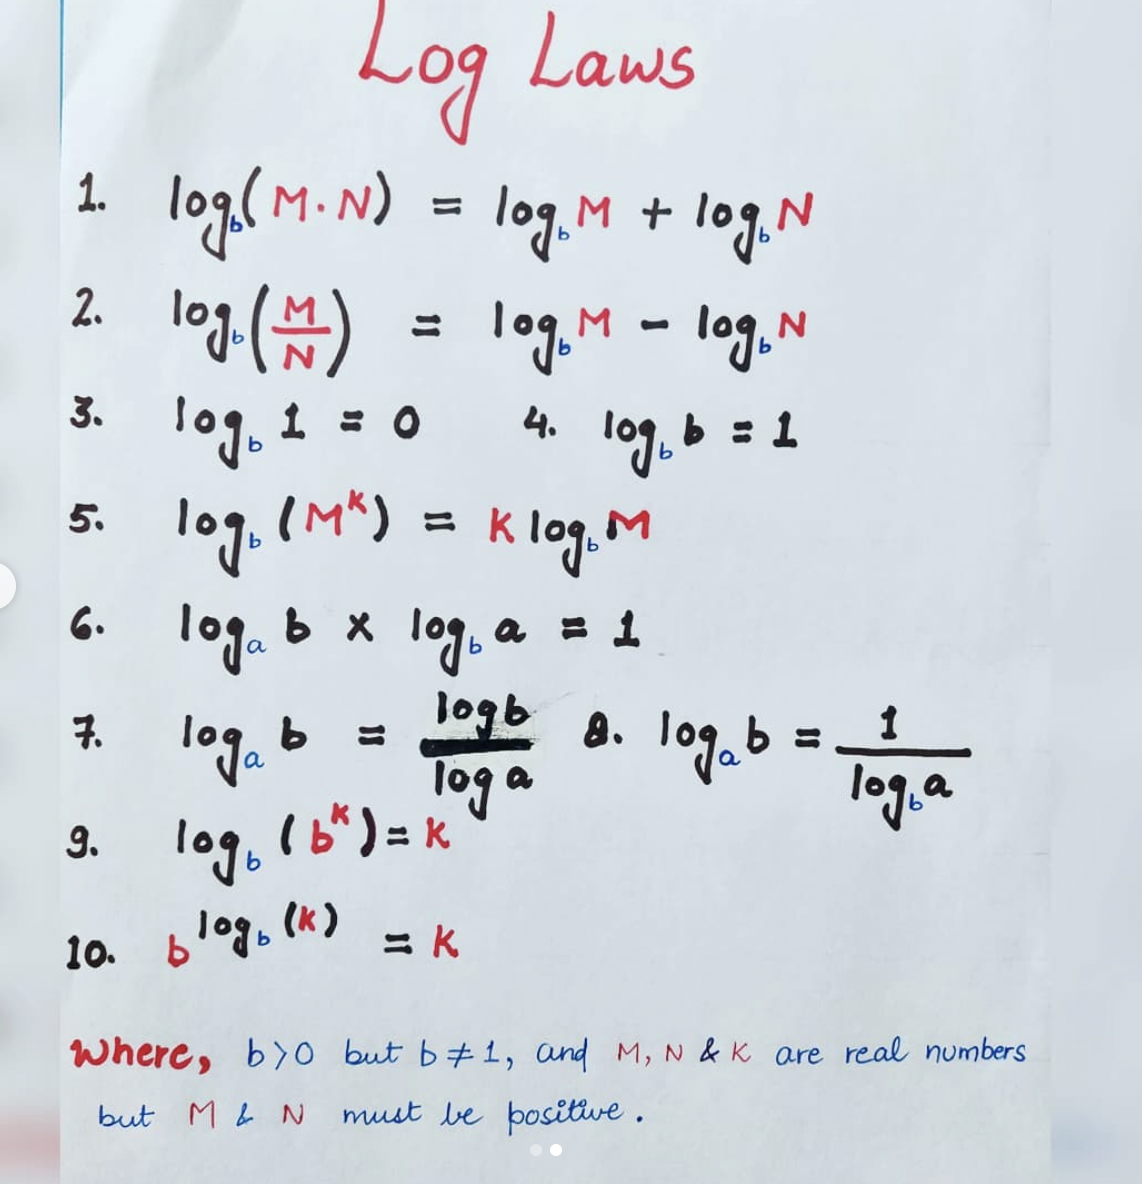 Log Laws
1. log_b(M·N) = log_b M + log_b N
2. log_b(M/N) = log_b M - log_b N
3. log_b 1 = 0 4. log_b b = 1
5. log_b (M^K) = K log_b M
6. log_a b x log_b a = 1
7. log_a b = log b / log a 8. log_a b = 1 / log_b a
9. log_b (b^K) = K
10. b^(log_b (K)) = K
Where, b>0 but b≠1, and M, N & K are real numbers
but M & N must be positive.